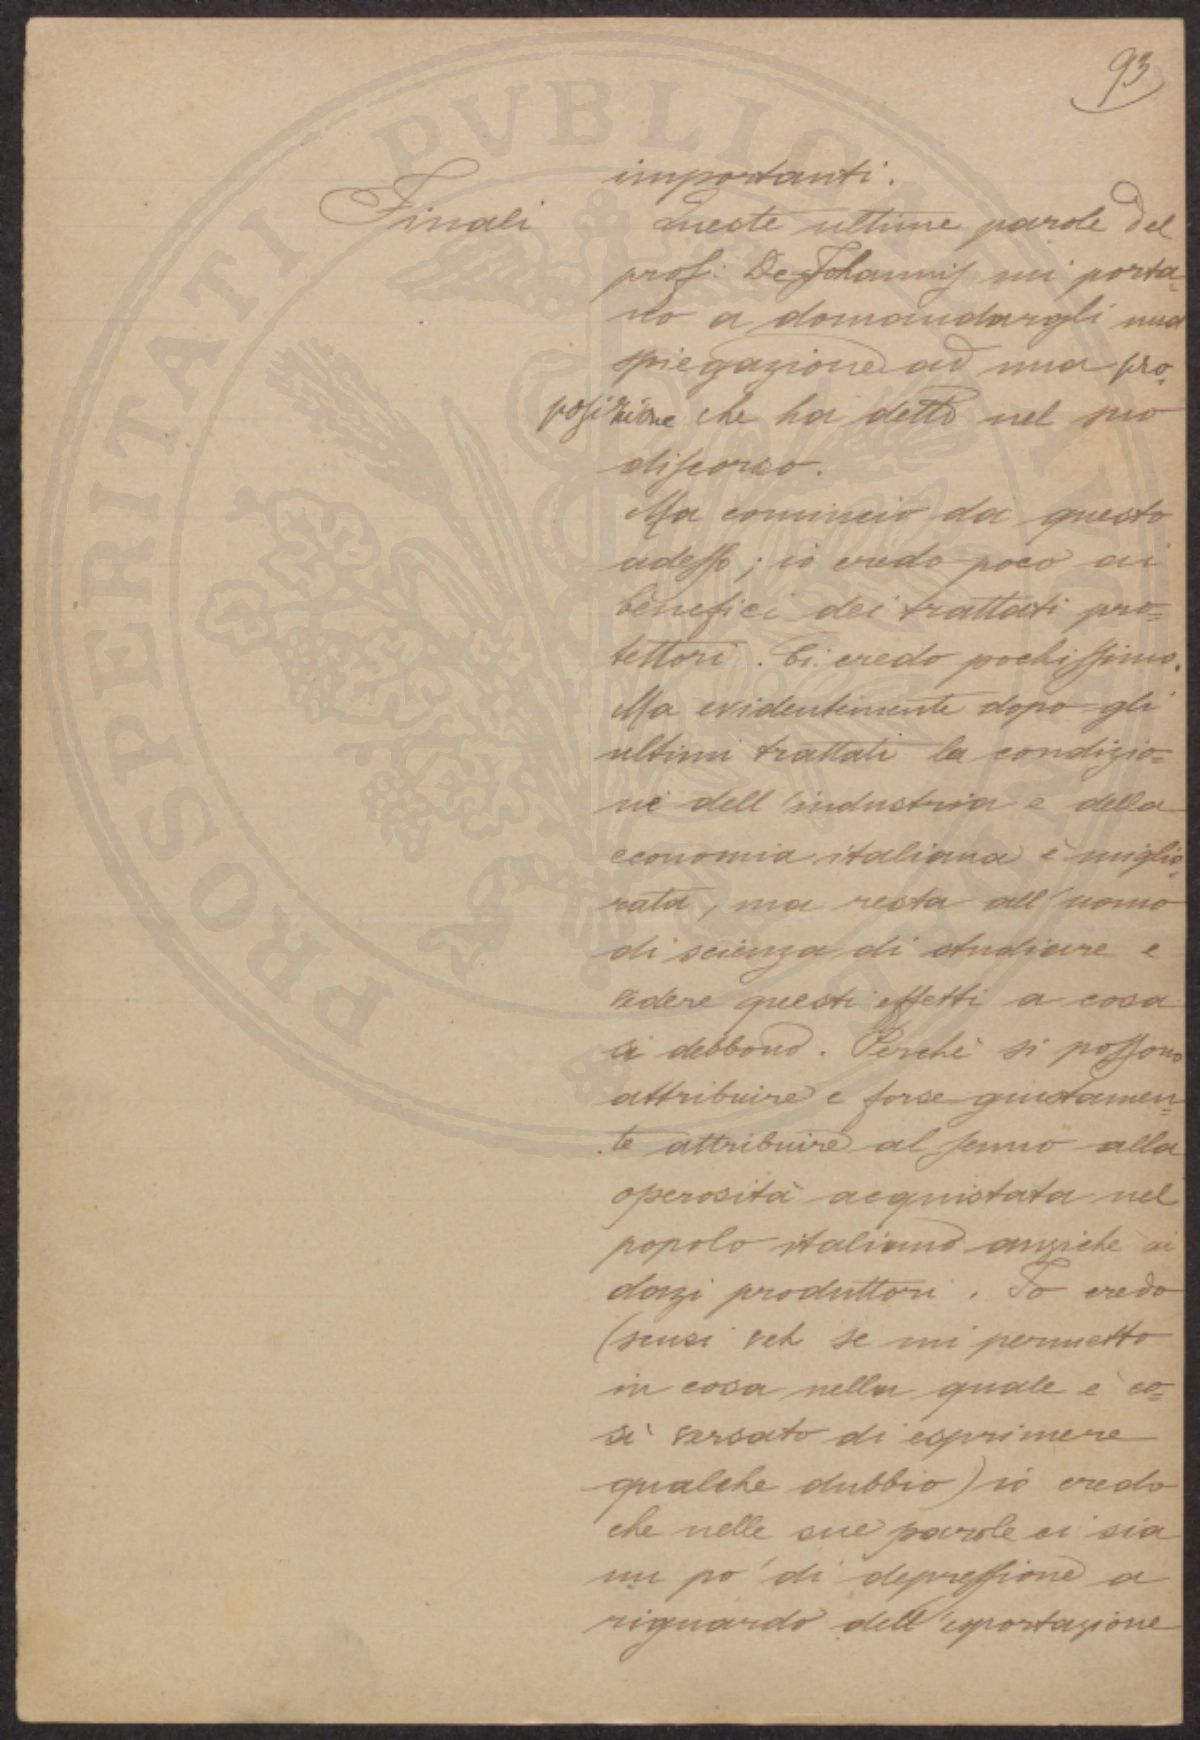 93
importanti.
Finali Queste ultime parole del
prof. De Johannis mi porta=
no a domandargli una
spiegazione ad una pro=
posizione che ha detto nel suo
discorso.
Ma comincio da questo
adesso; io credo poco ai
benefici dei trattati pro=
tettori. Ci credo pochissimo.
Ma evidentimente dopo gli
ultimi trattati la condizio=
ne dell'industria e della
economia italiana è miglio=
rata, ma resta all'uomo
di scienza di studiare e
vedere questi effetti a cosa
si debbono. Perchè si possono
attribuire e forse giustamen=
te attribuire al senno alla
operosità acquistata nel
popolo italiano anzichè ai
dazi produttori. Io credo
(scusi veh se mi permetto
in cosa nella quale è co=
sì versato di esprimere
qualche dubbio) io credo
che nelle sue parole ci sia
un po' di depressione a
riguardo dell'esportazione
PROSPERITATI PVBLICAE